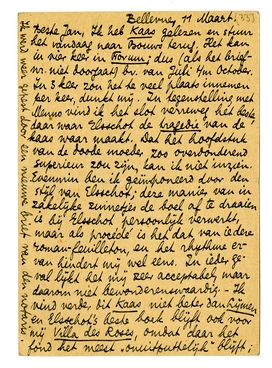 Bellevue, 11 Maart.
(33)
Beste Jan, Ik heb Kaas gelezen en stuur
het vandaag naar Bouws terug. Het kan
in vier keer in Forum; dus (als het brief-
nr. niet doorgaat) bv. van Juli t/m October.
In 3 keer zou het te veel plaats innemen
per keer, dunkt mij. In tegenstelling met
vind ik het slot verreweg het beste
daar waar Elsschot de tragedie van de
kaas waar maakt. Dat het hoofdstuk
van de doode moeder zoo overwonnend
superieur zou zijn, kan ik niet inzien.
Evenmin ben ik geïmponeerd door den
stijl van Elsschot; deze manier van in
zakelijke zinnetjes de boel af te draaien
is bij Elsschot persoonlijk verwerkt,
maar als procédé is het dat van iedere
roman-feuilleton, en het rhythme er-
van hindert mij wel eens. In ieder ge-
val lijkt het mij zeer acceptabel, maar
daarom niet bewonderenswaardig. - Ik
vind verder, dat Kaas niet beter dan Lijmen
en Elsschot's beste boek blijft ook voor
mij Villa des Roses, omdat daar het
fond het meest "onuitputtelijk" blijft;
Ik werd weer gestoord door een nieuwe brief van den notaris.